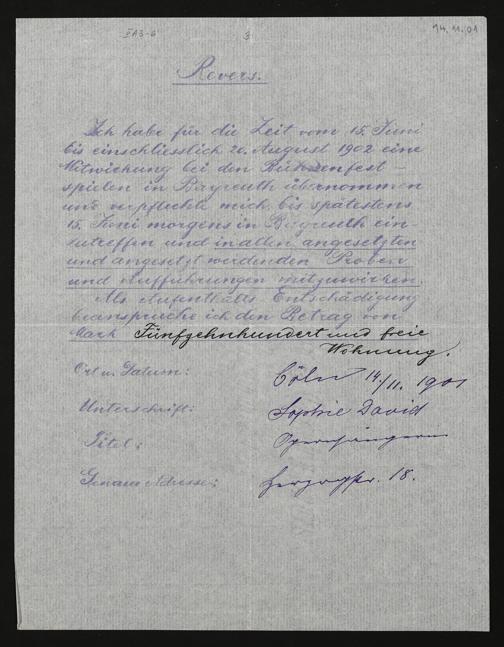 II A3-6
3
14.11.01
Revers.
Ich habe für die Zeit vom 15. Juni
bis einschliesslich 20. August 1902 eine
Mitwirkung bei den Bühnenfest-
spielen in Bayreuth übernommen
und verpflichte mich, bis spätestens
15. Juni morgens in Bayreuth ein-
zutreffen und in allen angesetzten
und angesetzt werdenden Proben
und Aufführungen mitzuwirken.
Als Aufenthalts Entschädigung
beanspruche ich den Betrag von
Mark Fünfzehnhundert und freie
Wohnung.
Ort u. Datum: Cöln 14/11. 1901
Unterschrift: Sophie David
Titel: Opernsängerin
Genaue Adresse: Herzogstr. 18.